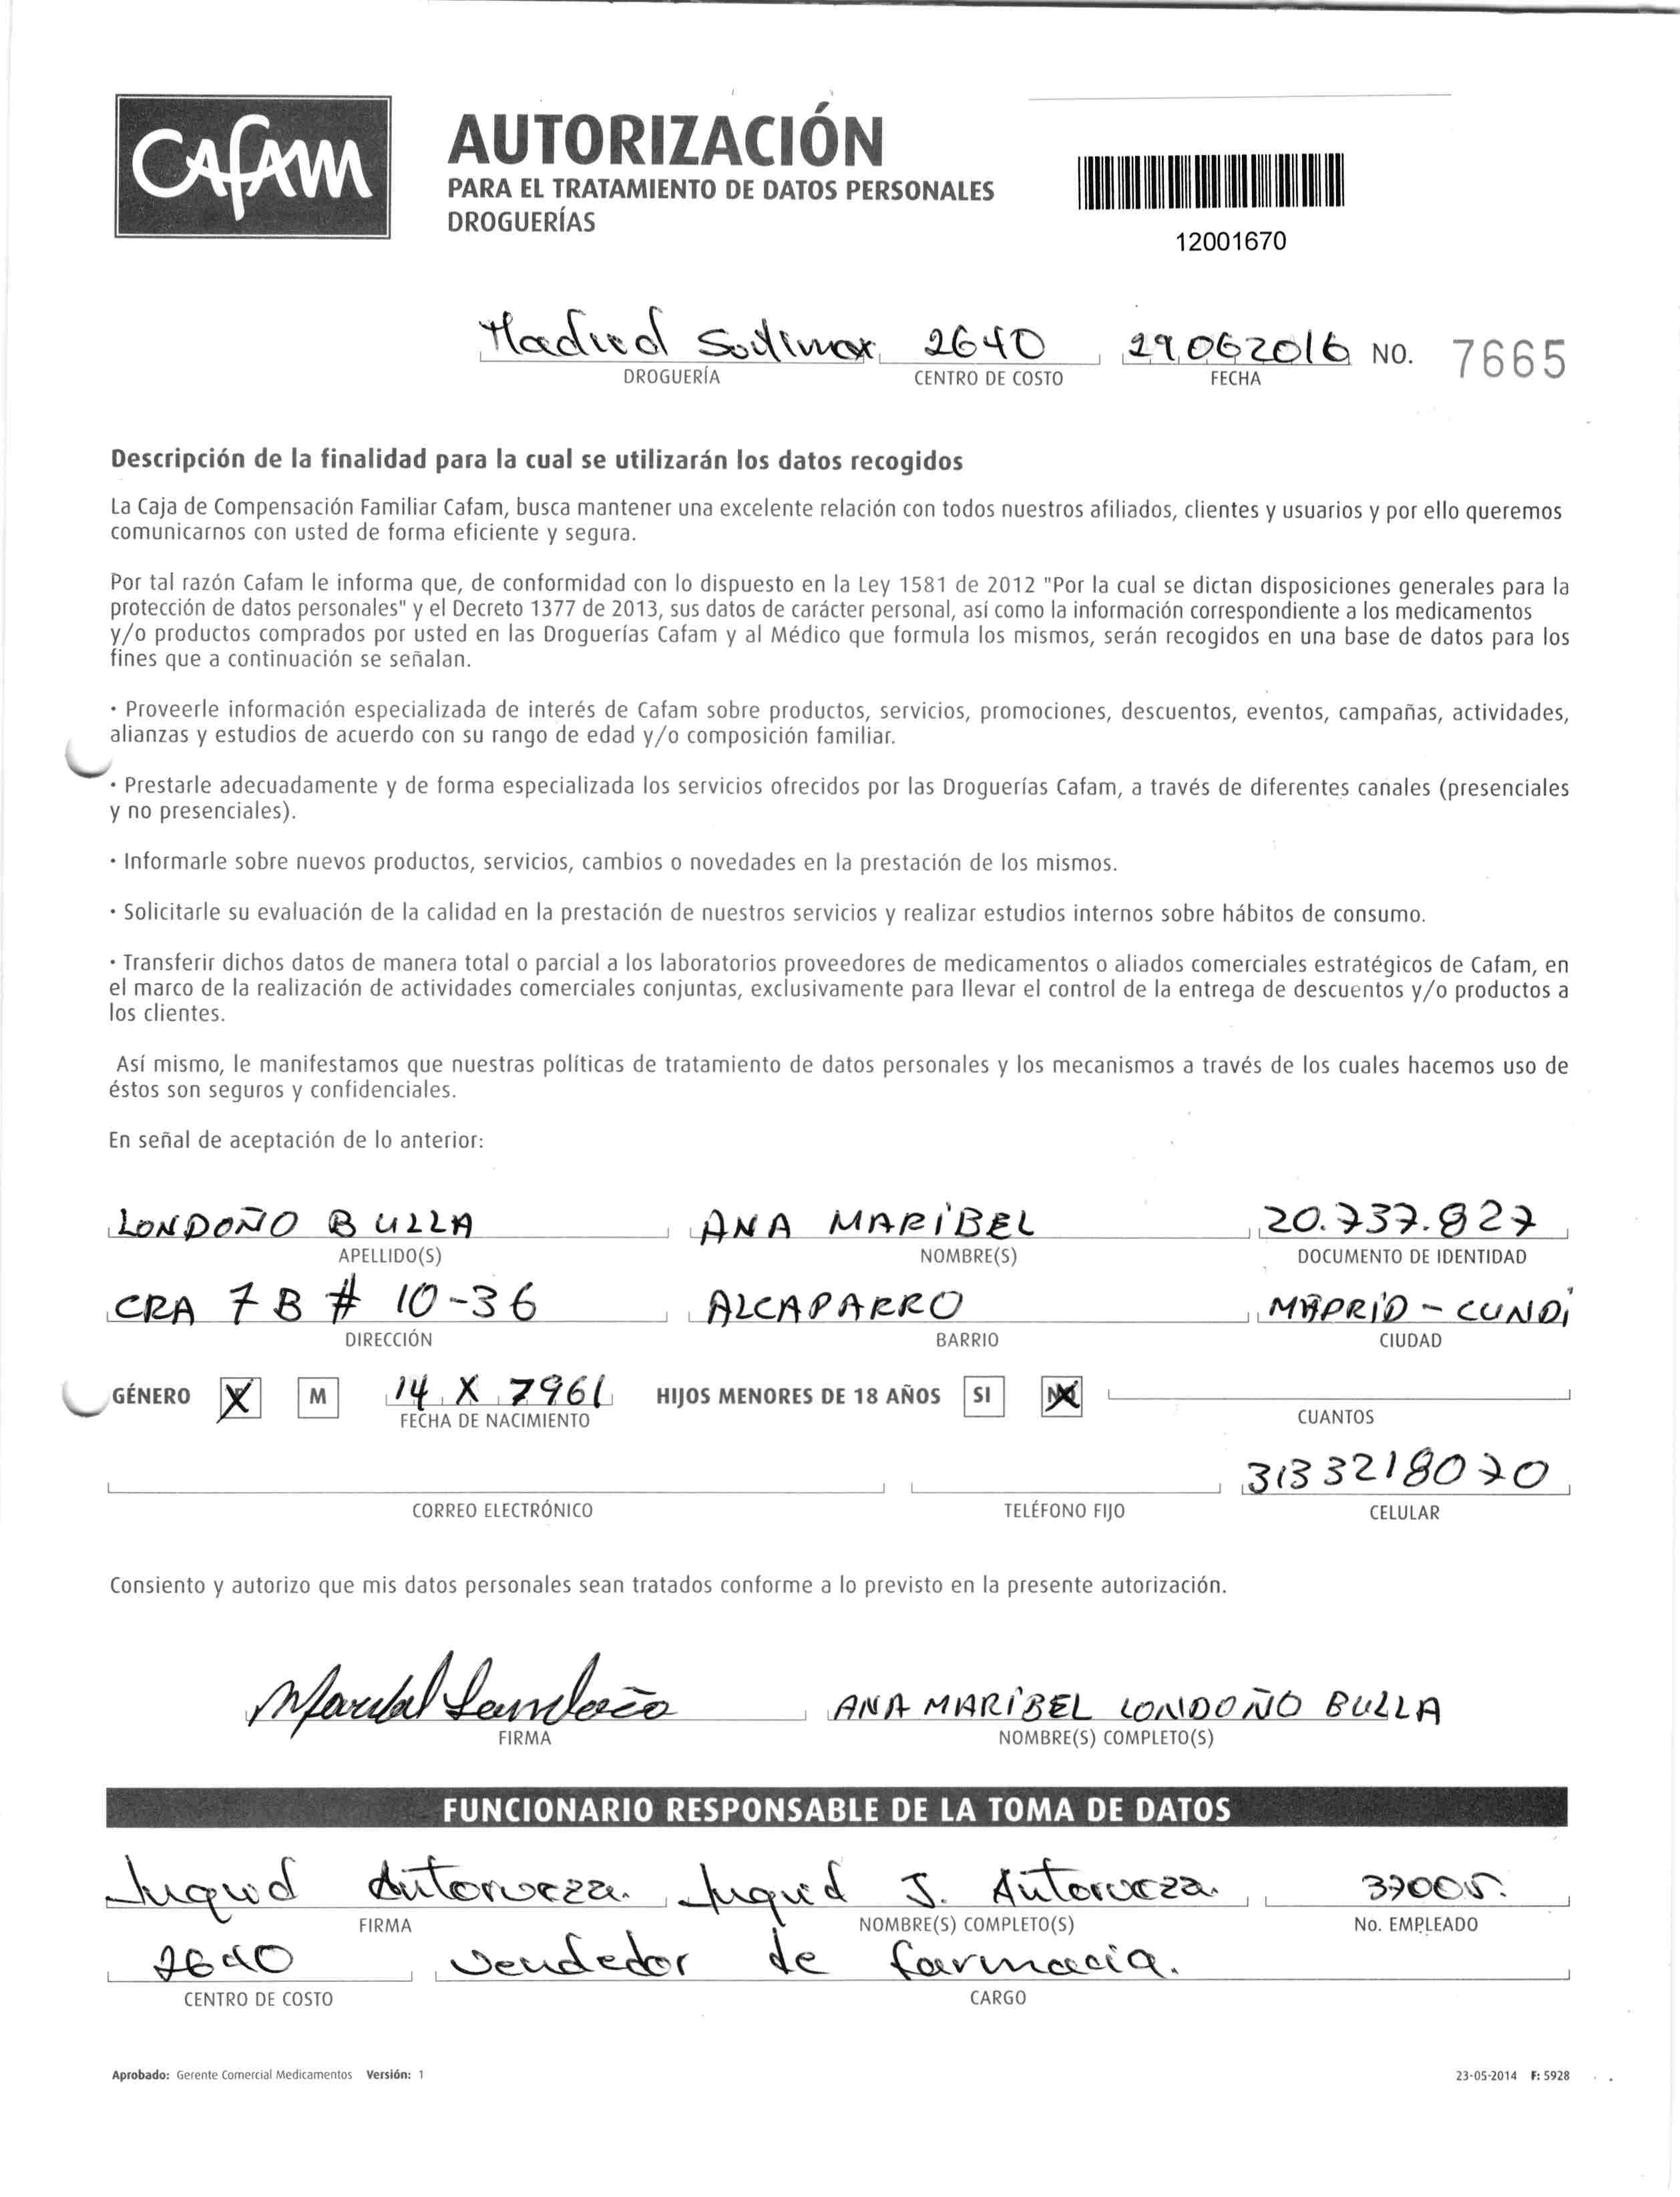 CAFAM
AUTORIZACIÓN
PARA EL TRATAMIENTO DE DATOS PERSONALES
DROGUERÍAS
12001670
Madrid 2640 29062016 NO. 7665
DROGUERÍA CENTRO DE COSTO FECHA
Descripción de la finalidad para la cual se utilizarán los datos recogidos
La Caja de Compensación Familiar Cafam, busca mantener una excelente relación con todos nuestros afiliados, clientes y usuarios y por ello queremos
comunicarnos con usted de forma eficiente y segura.
Por tal razón Cafam le informa que, de conformidad con lo dispuesto en la Ley 1581 de 2012 "Por la cual se dictan disposiciones generales para la
protección de datos personales" y el Decreto 1377 de 2013, sus datos de carácter personal, así como la información correspondiente a los medicamentos
y/o productos comprados por usted en las Droguerías Cafam y al Médico que formula los mismos, serán recogidos en una base de datos para los
fines que a continuación se señalan.
• Proveerle información especializada de interés de Cafam sobre productos, servicios, promociones, descuentos, eventos, campañas, actividades,
alianzas y estudios de acuerdo con su rango de edad y/o composición familiar.
• Prestarle adecuadamente y de forma especializada los servicios ofrecidos por las Droguerías Cafam, a través de diferentes canales (presenciales
y no presenciales).
• Informarle sobre nuevos productos, servicios, cambios o novedades en la prestación de los mismos.
• Solicitarle su evaluación de la calidad en la prestación de nuestros servicios y realizar estudios internos sobre hábitos de consumo.
• Transferir dichos datos de manera total o parcial a los laboratorios proveedores de medicamentos o aliados comerciales estratégicos de Cafam, en
el marco de la realización de actividades comerciales conjuntas, exclusivamente para llevar el control de la entrega de descuentos y/o productos a
los clientes.
Así mismo, le manifestamos que nuestras políticas de tratamiento de datos personales y los mecanismos a través de los cuales hacemos uso de
éstos son seguros y confidenciales.
En señal de aceptación de lo anterior:
LONDOÑO BULLA ANA MARIBEL 20.737.827
APELLIDO(S) NOMBRE(S) DOCUMENTO DE IDENTIDAD
CRA 7 B # 10-36 ALCAPARRO MADRID - CUNDI
DIRECCIÓN BARRIO CIUDAD
GÉNERO X M 14 X 1961 HIJOS MENORES DE 18 AÑOS SI NO
FECHA DE NACIMIENTO CUANTOS
3133218070
CORREO ELECTRÓNICO TELÉFONO FIJO CELULAR
Consiento y autorizo que mis datos personales sean tratados conforme a lo previsto en la presente autorización.
Maribel Londoño ANA MARIBEL LONDOÑO BULLA
FIRMA NOMBRE(S) COMPLETO(S)
FUNCIONARIO RESPONSABLE DE LA TOMA DE DATOS
J. 37005.
FIRMA NOMBRE(S) COMPLETO(S) No. EMPLEADO
2640 Vendedor de farmacia.
CENTRO DE COSTO CARGO
Aprobado: Gerente Comercial Medicamentos Versión: 1 23-05-2014 F: 5928